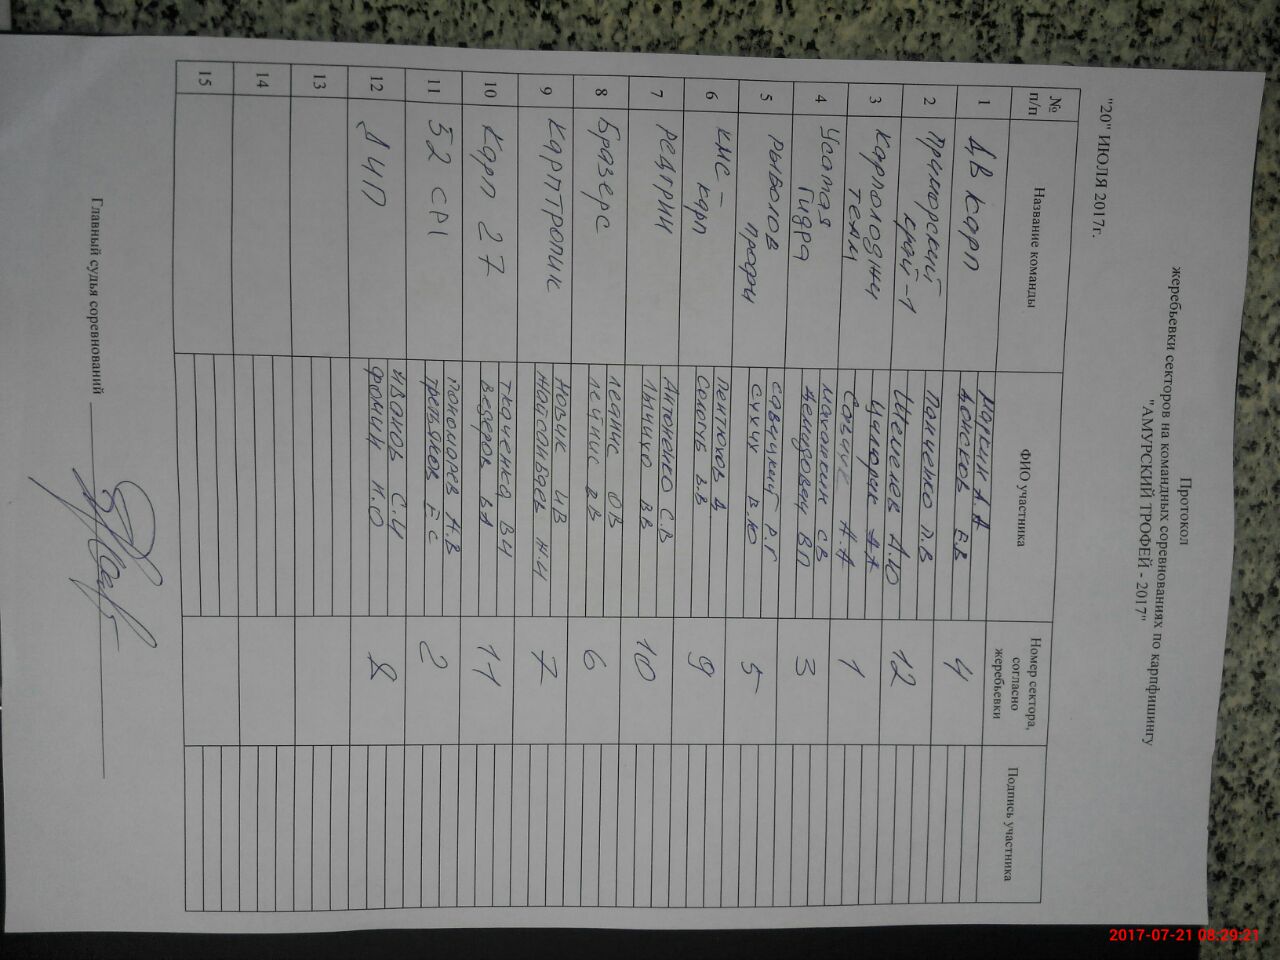 Протокол
жеребьевки секторов на командных соревнованиях по карпфишингу
"АМУРСКИЙ ТРОФЕЙ - 2017"
"20" ИЮЛЯ 2017г.
№ п/п Название команды ФИО участника Номер сектора, согласно жеребьевки Подпись участника
1 ДВ карп 4
Маркин А.А
Донсков Е.В
2 Приморский край-1 12
Панченко П.В
Шемелев А.Ю
3 Карполоджи теам 1
Циморак А.А
Савчук А.А
4 Усатая Гидра 3
Махонкин СВ
Демидовец ВП
5 рыболов профи 5
савицкий Р.Г
сухих В.Ю
6 КМС - карп 9
Пентюхов Д
Сологуб В.В
7 Редгрин 10
Антоненко С.В
Лычихо ВВ
8 Бразерс 6
ледние ОВ
лейпис ВВ
9 Карптропик 7
Новик ИВ
10 Карп 27 11
Ткаченко ВИ
Ведеров ВА
11 52 СР1 2
Пономорев А.В
третьяков ЕС
12 ДЧП 8
Иванов С.Ч
Фомин И.О
13
14
15
Главный судья соревнований
2017-07-21 08:29:21